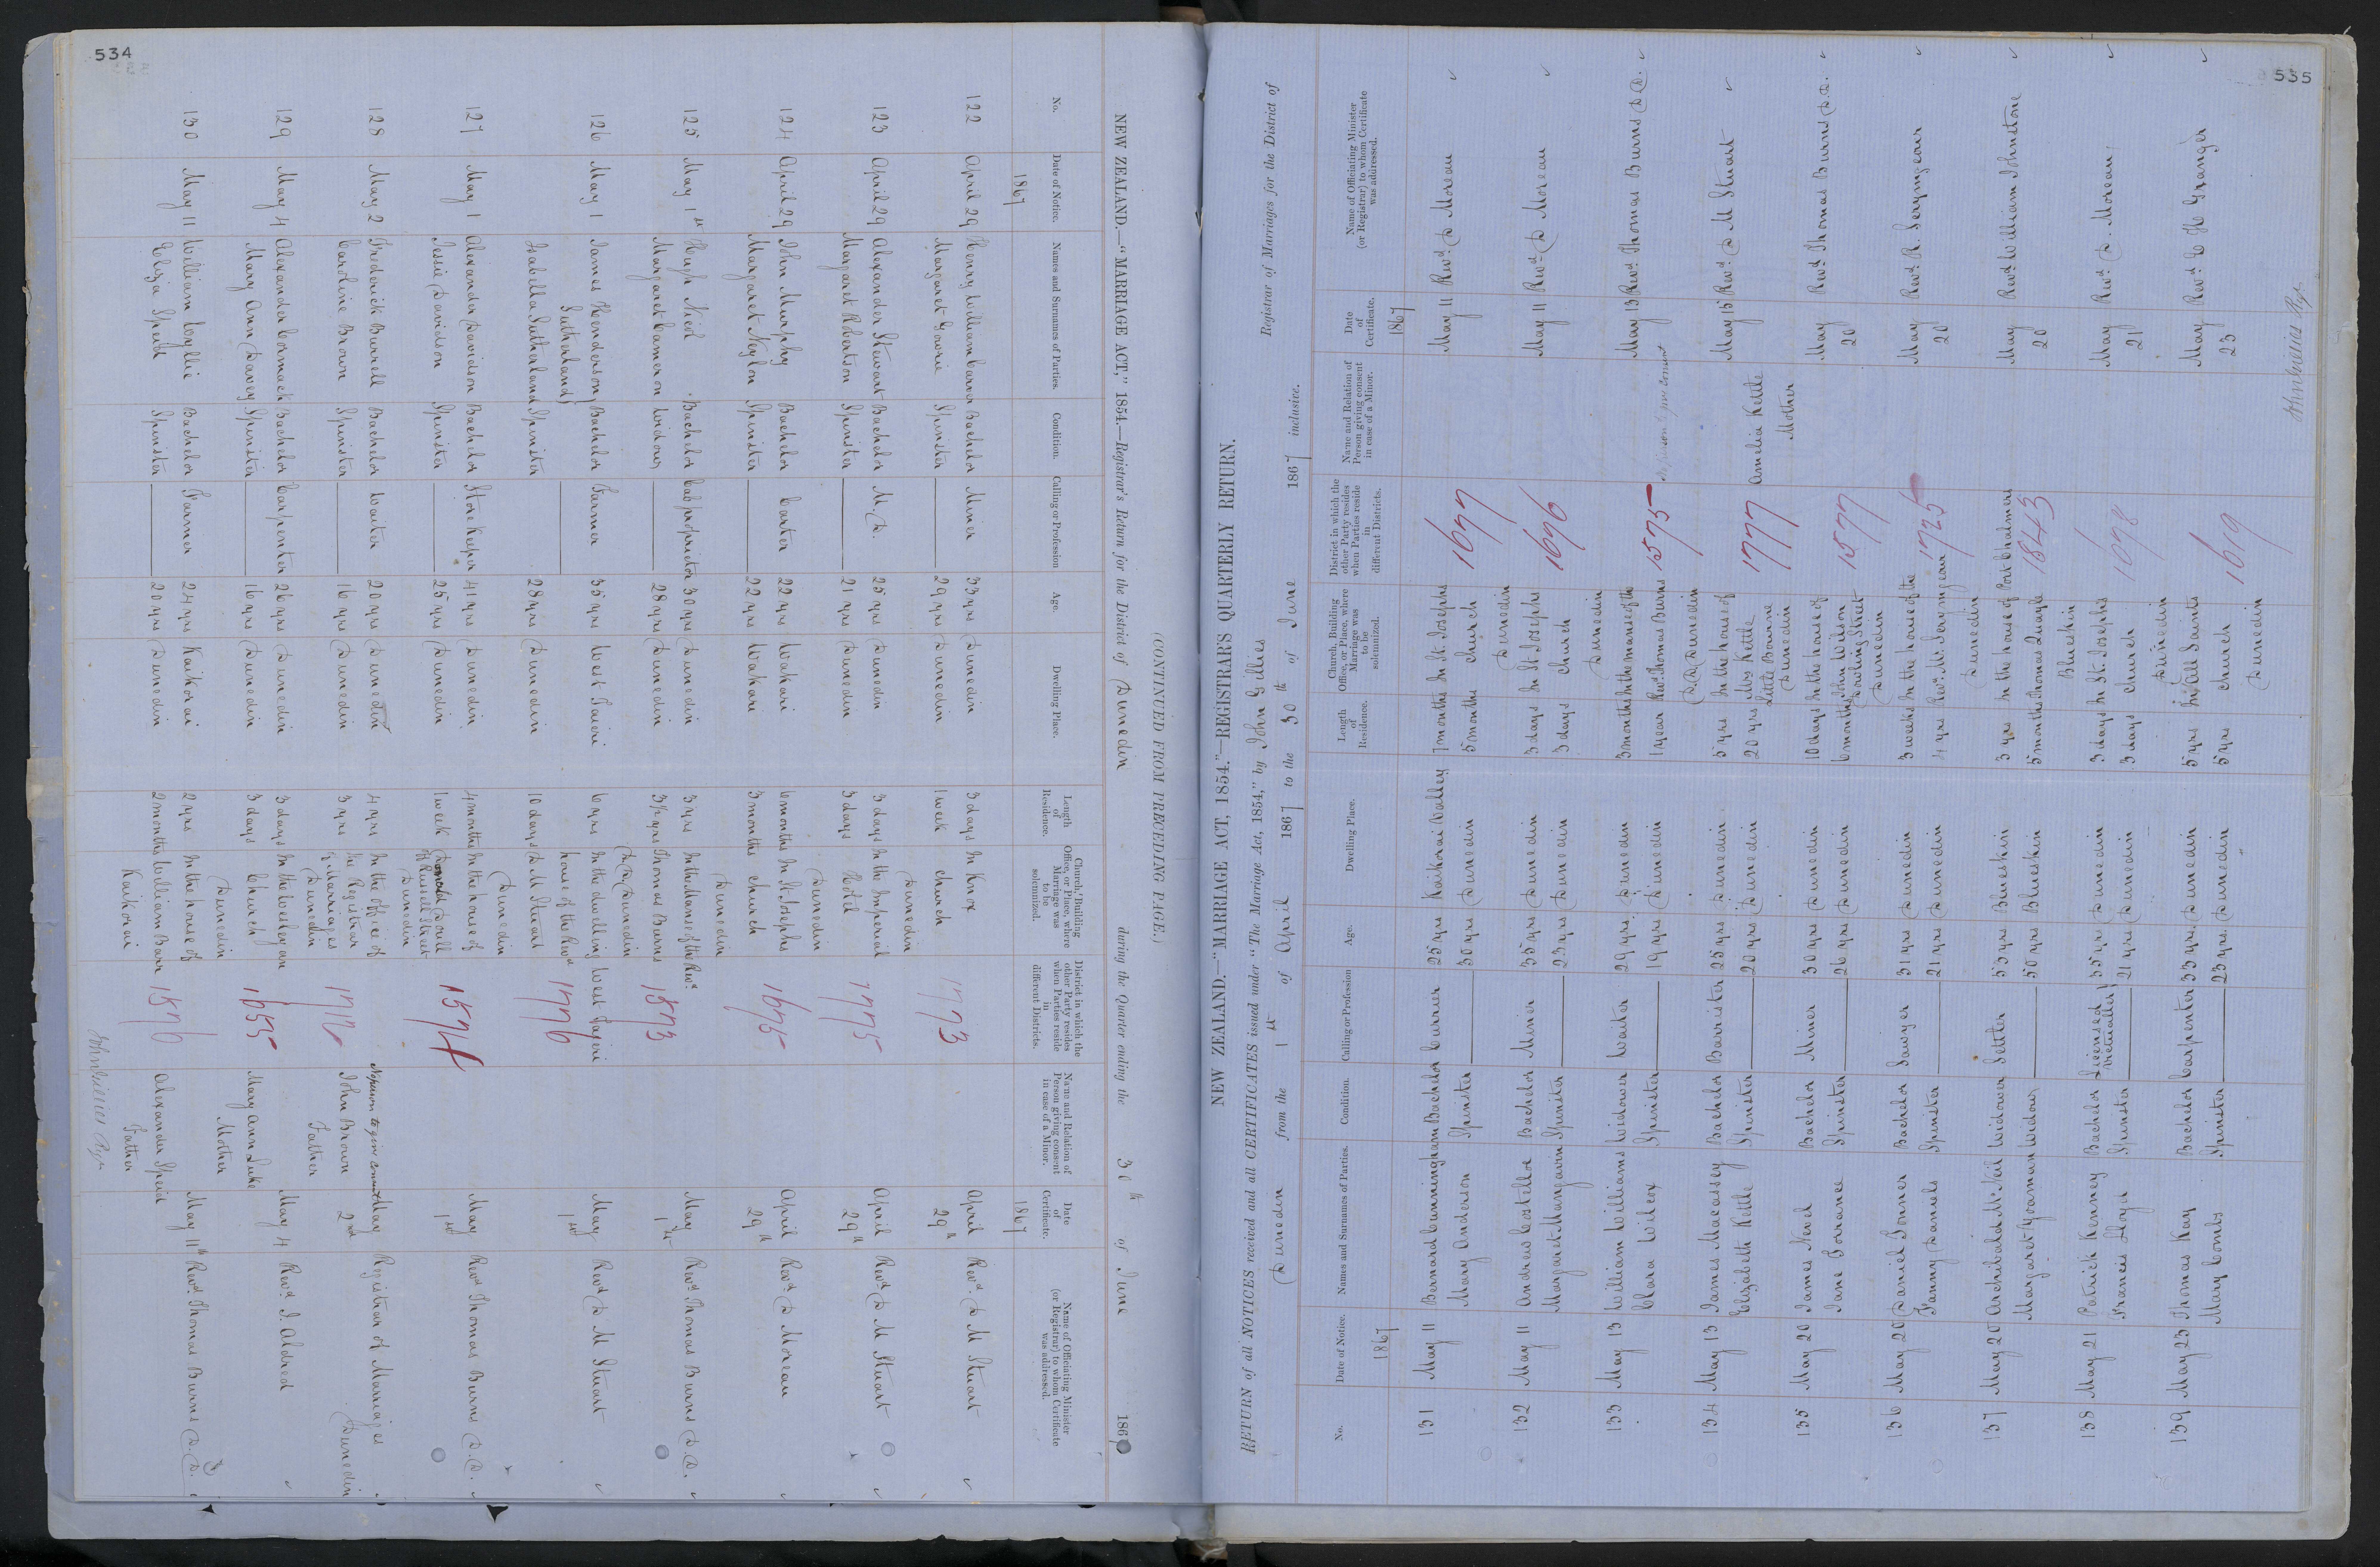 534
NEW ZEALAND.—"MARRIAGE ACT," 1854.—Registrar's Return for the District of Dunedin during the Quarter ending the 30th of June 1867
No.
Date of Notice.
Names and Surnames of Parties.
Condition.
Calling or Profession
Age.
Dwelling Place.
Length of Residence.
Church, Building Office, or Place, where Marriage was to be solemnized.
District in which the other Party resides when Parties reside in different Districts.
Name and Relation of Person giving consent in case of a Minor.
Date of Certificate.
Name of Officiating Minister (or Registrar) to whom Certificate was addressed.
1867 1867
122 April 29 Henry William Carver Bachelor Miner 33 yrs Dunedin 3 days In Knox April Revd. D M Stuart
Margaret Gowrie Spinster 29 yrs Dunedin 1 week Church 1773 29th
Dunedin
123 April 29 Alexander Stewart Bachelor M. D. 25 yrs Dunedin 3 days In the Imperial April Revd D M Stuart
Margaret Roberton Spinster 21 yrs Dunedin 3 days Hotel 1775 29th
Dunedin
124 April 29 John Murphy Bachelor Carter 22 yrs Wakari 6 months In St Josephs April Revd. D Moreau
Margaret Neylon Spinster 22 yrs Wakari 3 months Church 1675 29th
Dunedin
125 May 1st Hugh Nicol Bachelor Cab proprietor 30 yrs Dunedin 3 yrs In the Manse of the Revd. May Revd Thomas Burns D.D.
Margaret Cameron Widow 28 yrs Dunedin 3½ yrs Thomas Burns 1573 1st
D.D, Dunedin
126 May 1 James Henderson Bachelor Farmer 35 yrs West Taieri 6 yrs In the dwelling West Taieri May Revd D M Stuart
Sutherland house of the Revd 1776 1st
Isabella Sutherland Spinster 28 yrs Dunedin 10 days D M Stuart
Dunedin
127 May 1 Alexander Davidson Bachelor Store Keeper 41 yrs Dunedin 4 months In the house of May Revd Thomas Burns D.D.
Jessie Davidson Spinster 25 yrs Dunedin 1 week Donald Doull 1574 1st
off Russell Street
Dunedin
128 May 2 Frederick Burrell Bachelor Waiter 20 yrs Dunedin 4 yrs In the office of No person to give consent May Registrar of Marriages
Caroline Brown Spinster 16 yrs Dunedin 3 yrs the Registrar John Brown 2nd Dunedin
of Marriages Father
Dunedin
129 May 4 Alexander Cormack Bachelor Carpenter 26 yrs Dunedin 3 days In the Wesleyan May 4 Revd I Aldred
Mary Ann Davey Spinster 16 yrs Dunedin 3 days Church 1655 Mary Ann Luke
Dunedin Mother
130 May 11 William Wyllie Bachelor Farmer 24 yrs Kaikorai 2 yrs In the house of May 11th Revd. Thomas Burns D.D.
Eliza Speid Spinster 20 yrs Dunedin 2 months William Barr 1576 Alexander Speid
Kaikorai Father
John Gillies Regr
(CONTINUED FROM PRECEDING PAGE.)
535
NEW ZEALAND.—"MARRIAGE ACT, 1854."—REGISTRAR'S QUARTERLY RETURN.
RETURN of all NOTICES received and all CERTIFICATES issued under "The Marriage Act, 1854," by John Gillies Registrar of Marriages for the District of
Dunedin from the 1st of April 1867 to the 30th of June 1867 inclusive.
No.
Date of Notice.
Names and Surnames of Parties.
Condition.
Calling or Profession
Age.
Dwelling Place.
Length of Residence.
Church, Building Office, or Place, where Marriage was to be solemnized.
District in which the other Party resides when Parties reside in different Districts.
Name and Relation of Person giving consent in case of a Minor.
Date of Certificate.
Name of Officiating Minister (or Registrar) to whom Certificate was addressed.
1867 1867
131 May 11 Bernard Cunningham Bachelor Currier 25 yrs Kaikorai Valley 7 months In St. Josephs May 11 Revd. D Moreau
Mary Anderson Spinster 30 yrs Dunedin 5 months Church 1677
Dunedin
132 May 11 Andrew Costelloe Bachelor Miner 35 yrs Dunedin 3 days In St Josephs May 11 Revd. D Moreau
Margaret Mangavin Spinster 23 yrs Dunedin 3 days Church 1676
Dunedin
133 May 13 William Williams Widower Waiter 29 yrs. Dunedin 3 months In the manse of the May 13 Revd. Thomas Burns D.D.
Clara Wilcox Spinster 19 yrs Dunedin 1 year Revd. Thomas Burns 1575 No person to give consent
D.D, Dunedin
134 May 13 James Macassey Bachelor Barrister 25 yrs Dunedin 5 yrs In the house of May 15 Revd. D M Stuart
Elizabeth Kettle Spinster 20 yrs Dunedin 20 yrs Mrs Kettle 1777 Amelia Kettle
Little Bourne Mother
Dunedin
135 May 20 James Nevel Bachelor Miner 30 yrs Dunedin 10 days In the house of May Revd Thomas Burns D.D.
Jane Torrance Spinster 26 yrs Dunedin 6 months John Wilson 1577 20
Dowling Street
Dunedin
136 May 20 Daniel Bonner Bachelor Sawyer 31 yrs Dunedin 3 weeks In the house of the May Revd. R. Scrymgeour
Fanny Daniels Spinster 21 yrs Dunedin 4 yrs Revd. Mr. Scrymgeour 1725 20
Dunedin
137 May 20 Archibald McNeil Widower Settler 53 yrs Blueskin 3 yrs In the house of Port Chalmers May Revd William Johnstone
Margaret Yooman Widow 50 yrs Blueskin 5 months Thomas Quayle 1843 20
Blueskin
138 May 21 Patrick Kenney Bachelor Licensed Victualler 35 yrs Dunedin 3 days In St. Josephs May Revd. D. Moreau
Frances Lloyd Spinster 21 yrs Dunedin 3 days Church 1678 21
Dunedin
139 May 23 Thomas Kay Bachelor Carpenter 33 yrs. Dunedin 5 yrs In All Saints May Revd. E G Granger
Mary Combs Spinster 23 yrs. Dunedin 5 yrs Church 1619 23
Dunedin
John Gillies Regr